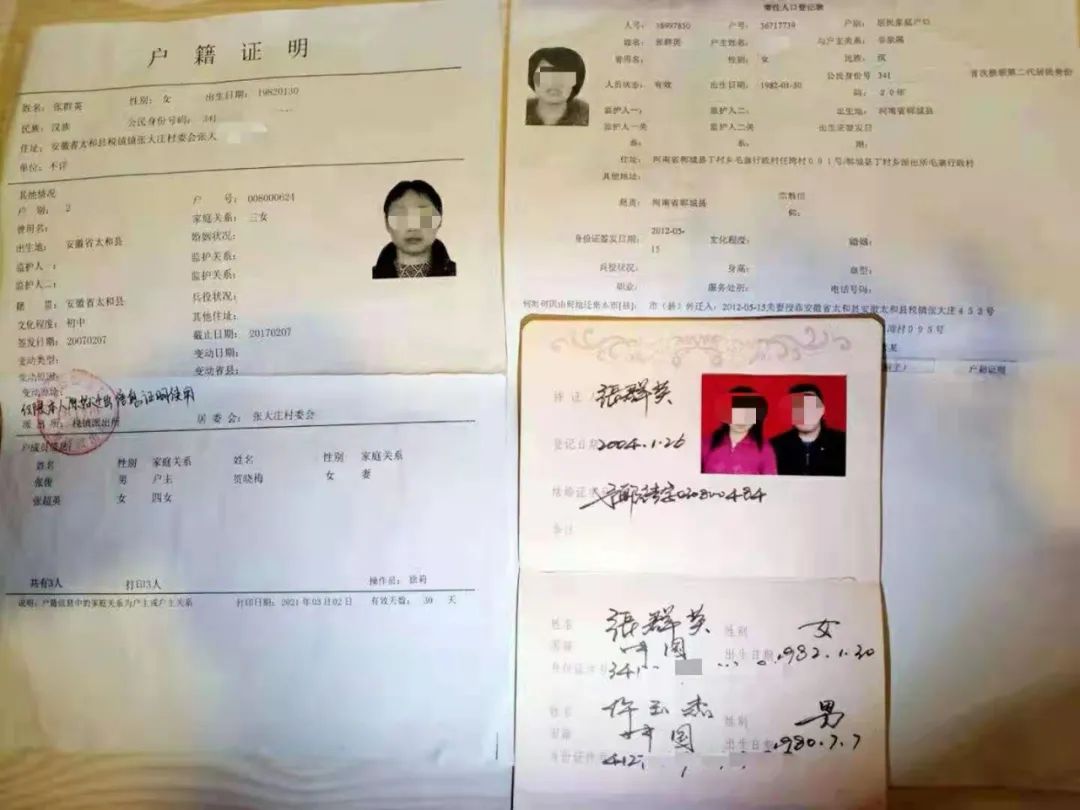 户籍证明
姓名：张群英 性别：女 出生日期：19820130
民族：汉族 公民身份号码：341
住址：安徽省太和县税镇镇张大庄村委会张大
单位：不详
其他情况
户 别：2 户 号：008000624
曾用名： 家庭关系：三女
出生地：安徽省太和县 婚姻状况：
监护人一： 监护关系：
监护人二： 监护关系：
籍 贯：安徽省太和县 兵役状况：
文化程度：初中 其他住址：
签发日期：20070207 截止日期：20170207
变动类型： 变动日期：
变动原因： 变动省县：
变动源地：
派出所：税镇派出所 居委会：张大庄村委会
户成员情况
姓名 性别 家庭关系 姓名 性别 家庭关系
张俊 男 户主 贺晓梅 女 妻
张超英 女 四女
共有3人 打印3人 操作员：徐莉
说明：户籍信息中的家庭关系为户主或户主关系 打印日期：2021年03月02日 有效天数：30 天
常住人口登记表
人号：38997850 户号：36717739 户别：居民家庭户口
姓名：张群英 户主姓名： 与户主关系：非亲属
曾用名： 性别：女 民族：汉
人员状态：有效 出生日期：1982-01-30 公民身份号码：341 首次换领第二代居民身份
20年
监护人一： 监护人二： 出生地：河南省郸城县
监护人一关系： 监护人二关系： 出生证签发日期：
住址：河南省郸城县丁村乡毛寨行政村任湾村091号/郸城县丁村乡派出所/毛寨行政村
其他地址：
籍贯：河南省郸城县 宗教信仰：
身份证签发日期：2012-05-15 文化程度： 婚姻：
兵役状况： 身高： 血型：
职业： 服务处所： 电话号码：
何时何因由何地迁来本市[县]： 市（县）外迁入：2012-05-15夫妻投靠安徽省太和县安徽太和县税镇张大庄453号
湾村095号
户籍证明
持证人 張群英
登记日期 2004.1.26
结婚证字号
备注
姓名 張群英 性别 女
国籍 中国 出生日期 1982.1.30
身份证件号 341
姓名 许玉杰 性别 男
国籍 中国 出生日期 1980.7.7
身份证件号 412